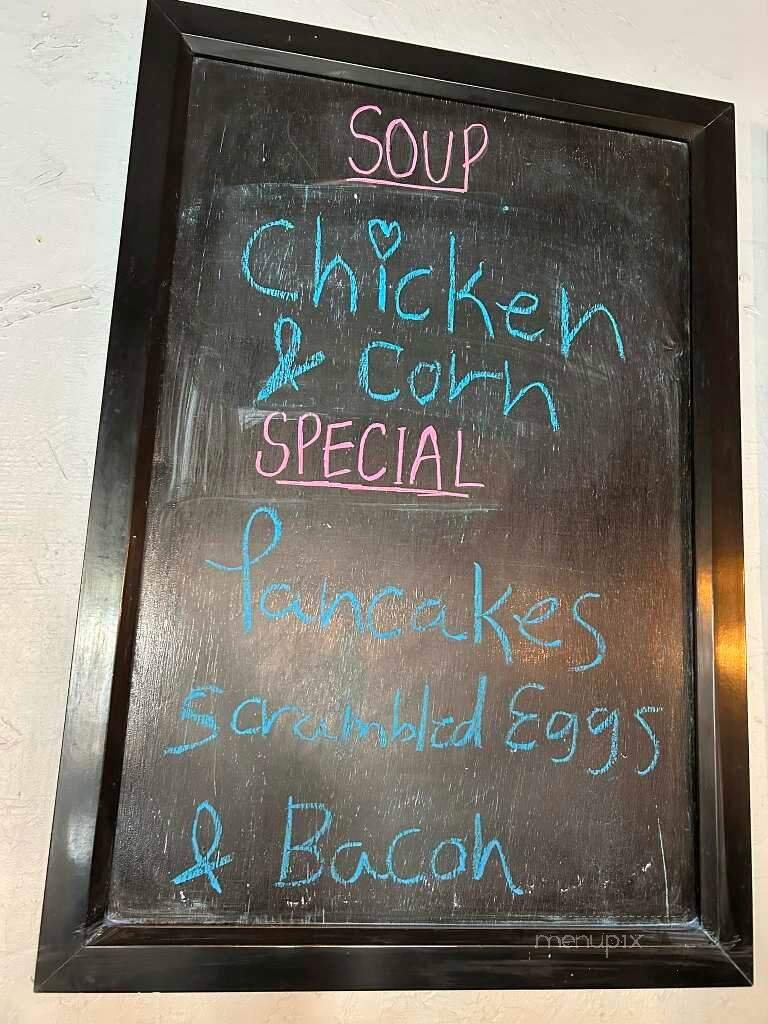 SOUP
Chicken
& Corn
SPECIAL
Pancakes
Scrambled Eggs
& Bacon
menupix